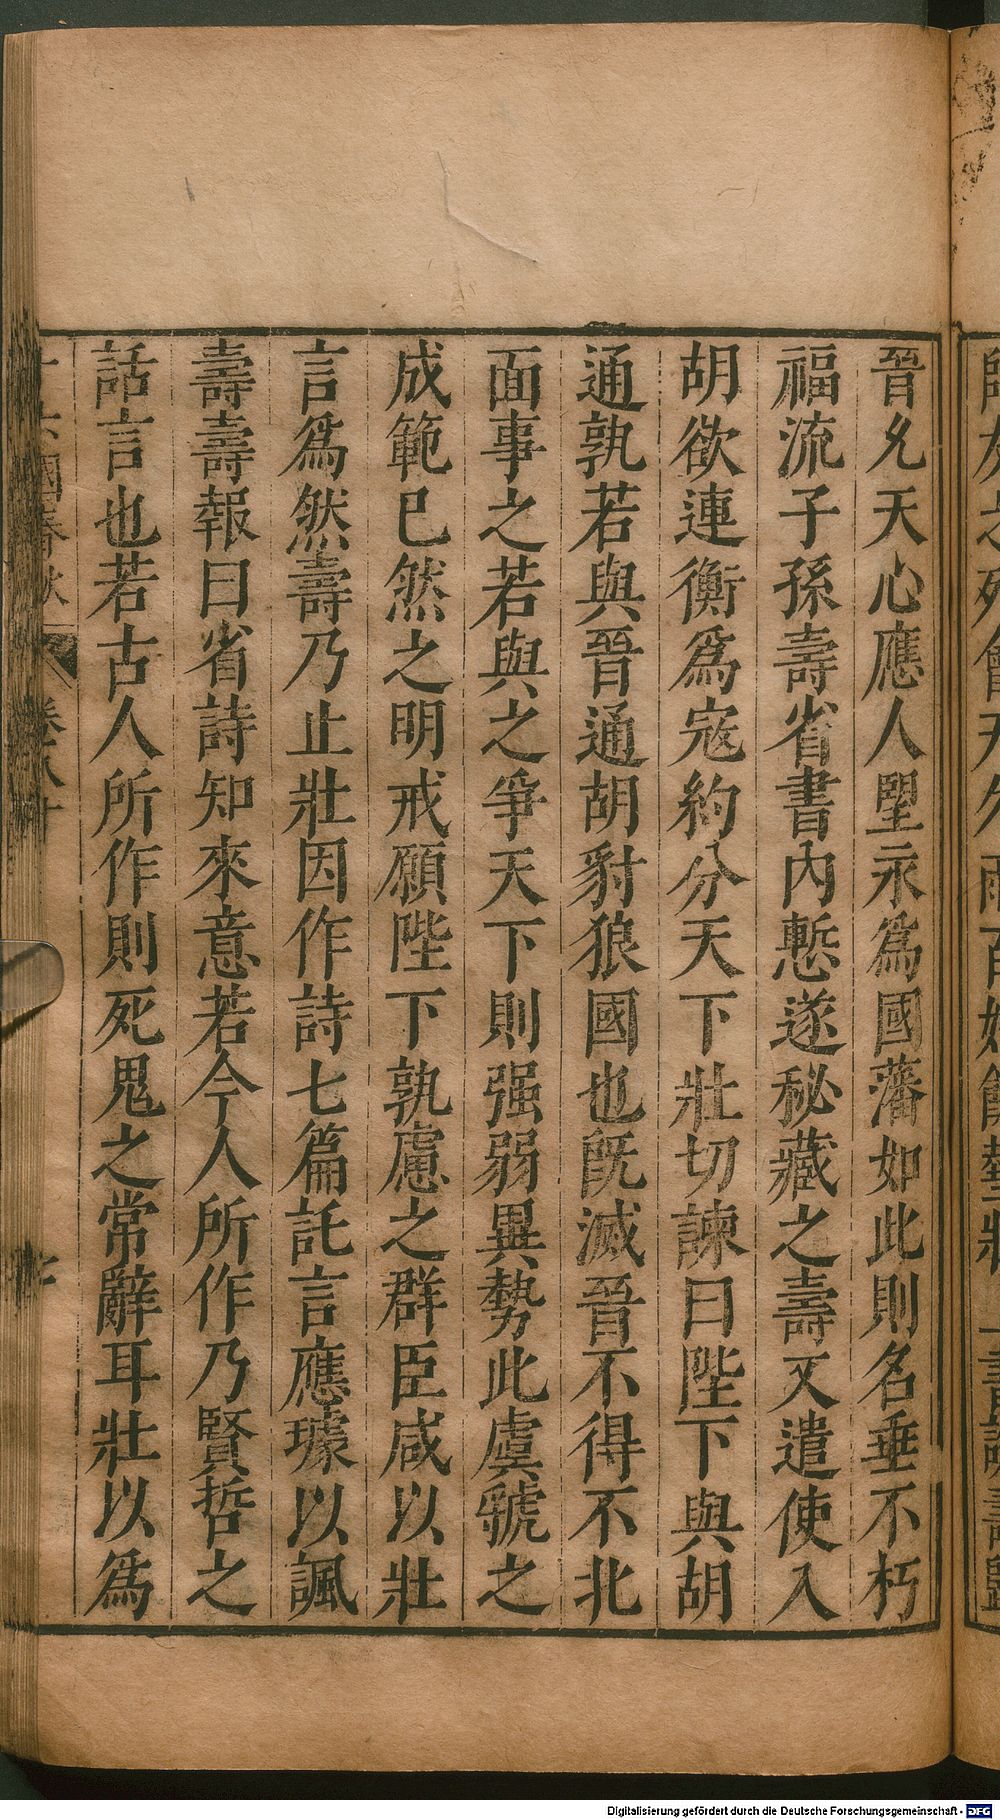 晉允天心應人望永爲國藩如此則名垂不朽
福流子孫壽省書內慙遂秘藏之壽又遣使入
胡欲連衡爲寇約分天下壯切諫曰陛下與胡
通孰若與晉通胡豺狼國也旣滅晉不得不北
面事之若與之爭天下則强弱異勢此虞虢之
成範已然之明戒願陛下孰慮之群臣咸以壯
言爲然壽乃止壯因作詩七篇託言應璩以諷
壽壽報曰省詩知來意若今人所作乃賢哲之
話言也若古人所作則死鬼之常辭耳壯以爲
十六國春秋 卷八十
Digitalisierung gefördert durch die Deutsche Forschungsgemeinschaft - DFG